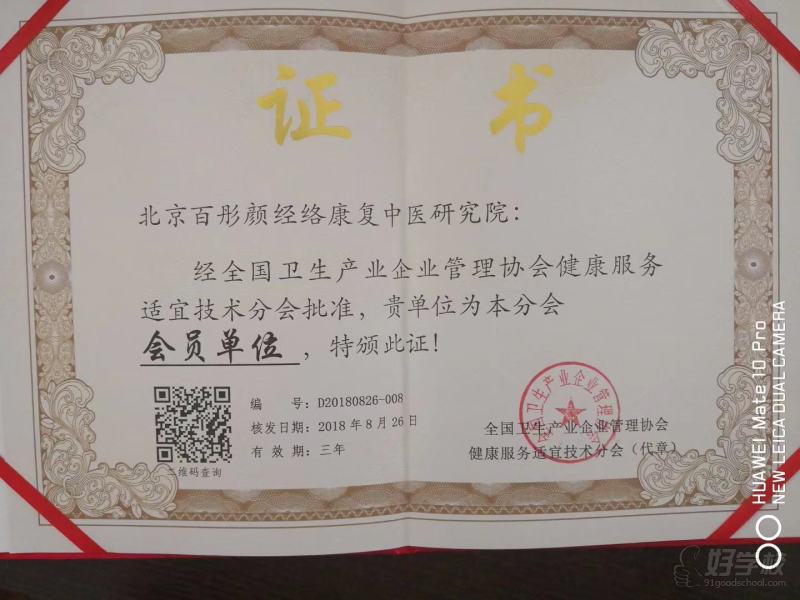 证书
北京百彤颜经络康复中医研究院：
经全国卫生产业企业管理协会健康服务
适宜技术分会批准，贵单位为本分会
会员单位，特颁此证！
编 号：D20180826-008
核发日期：2018年8月26日
有效期：三年
二维码查询
全国卫生产业企业管理协会
健康服务适宜技术分会（代章）
HUAWEI Mate 10 Pro
NEW LEICA DUAL CAMERA
好学校
91goodschool.com